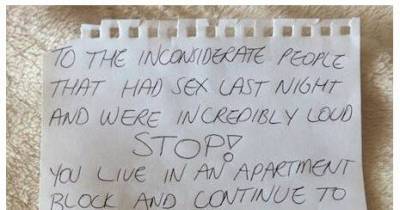 TO THE INCONSIDERATE PEOPLE
THAT HAD SEX LAST NIGHT
AND WERE INCREDIBLY LOUD
STOP!
YOU LIVE IN AN APARTMENT
BLOCK AND CONTINUE TO